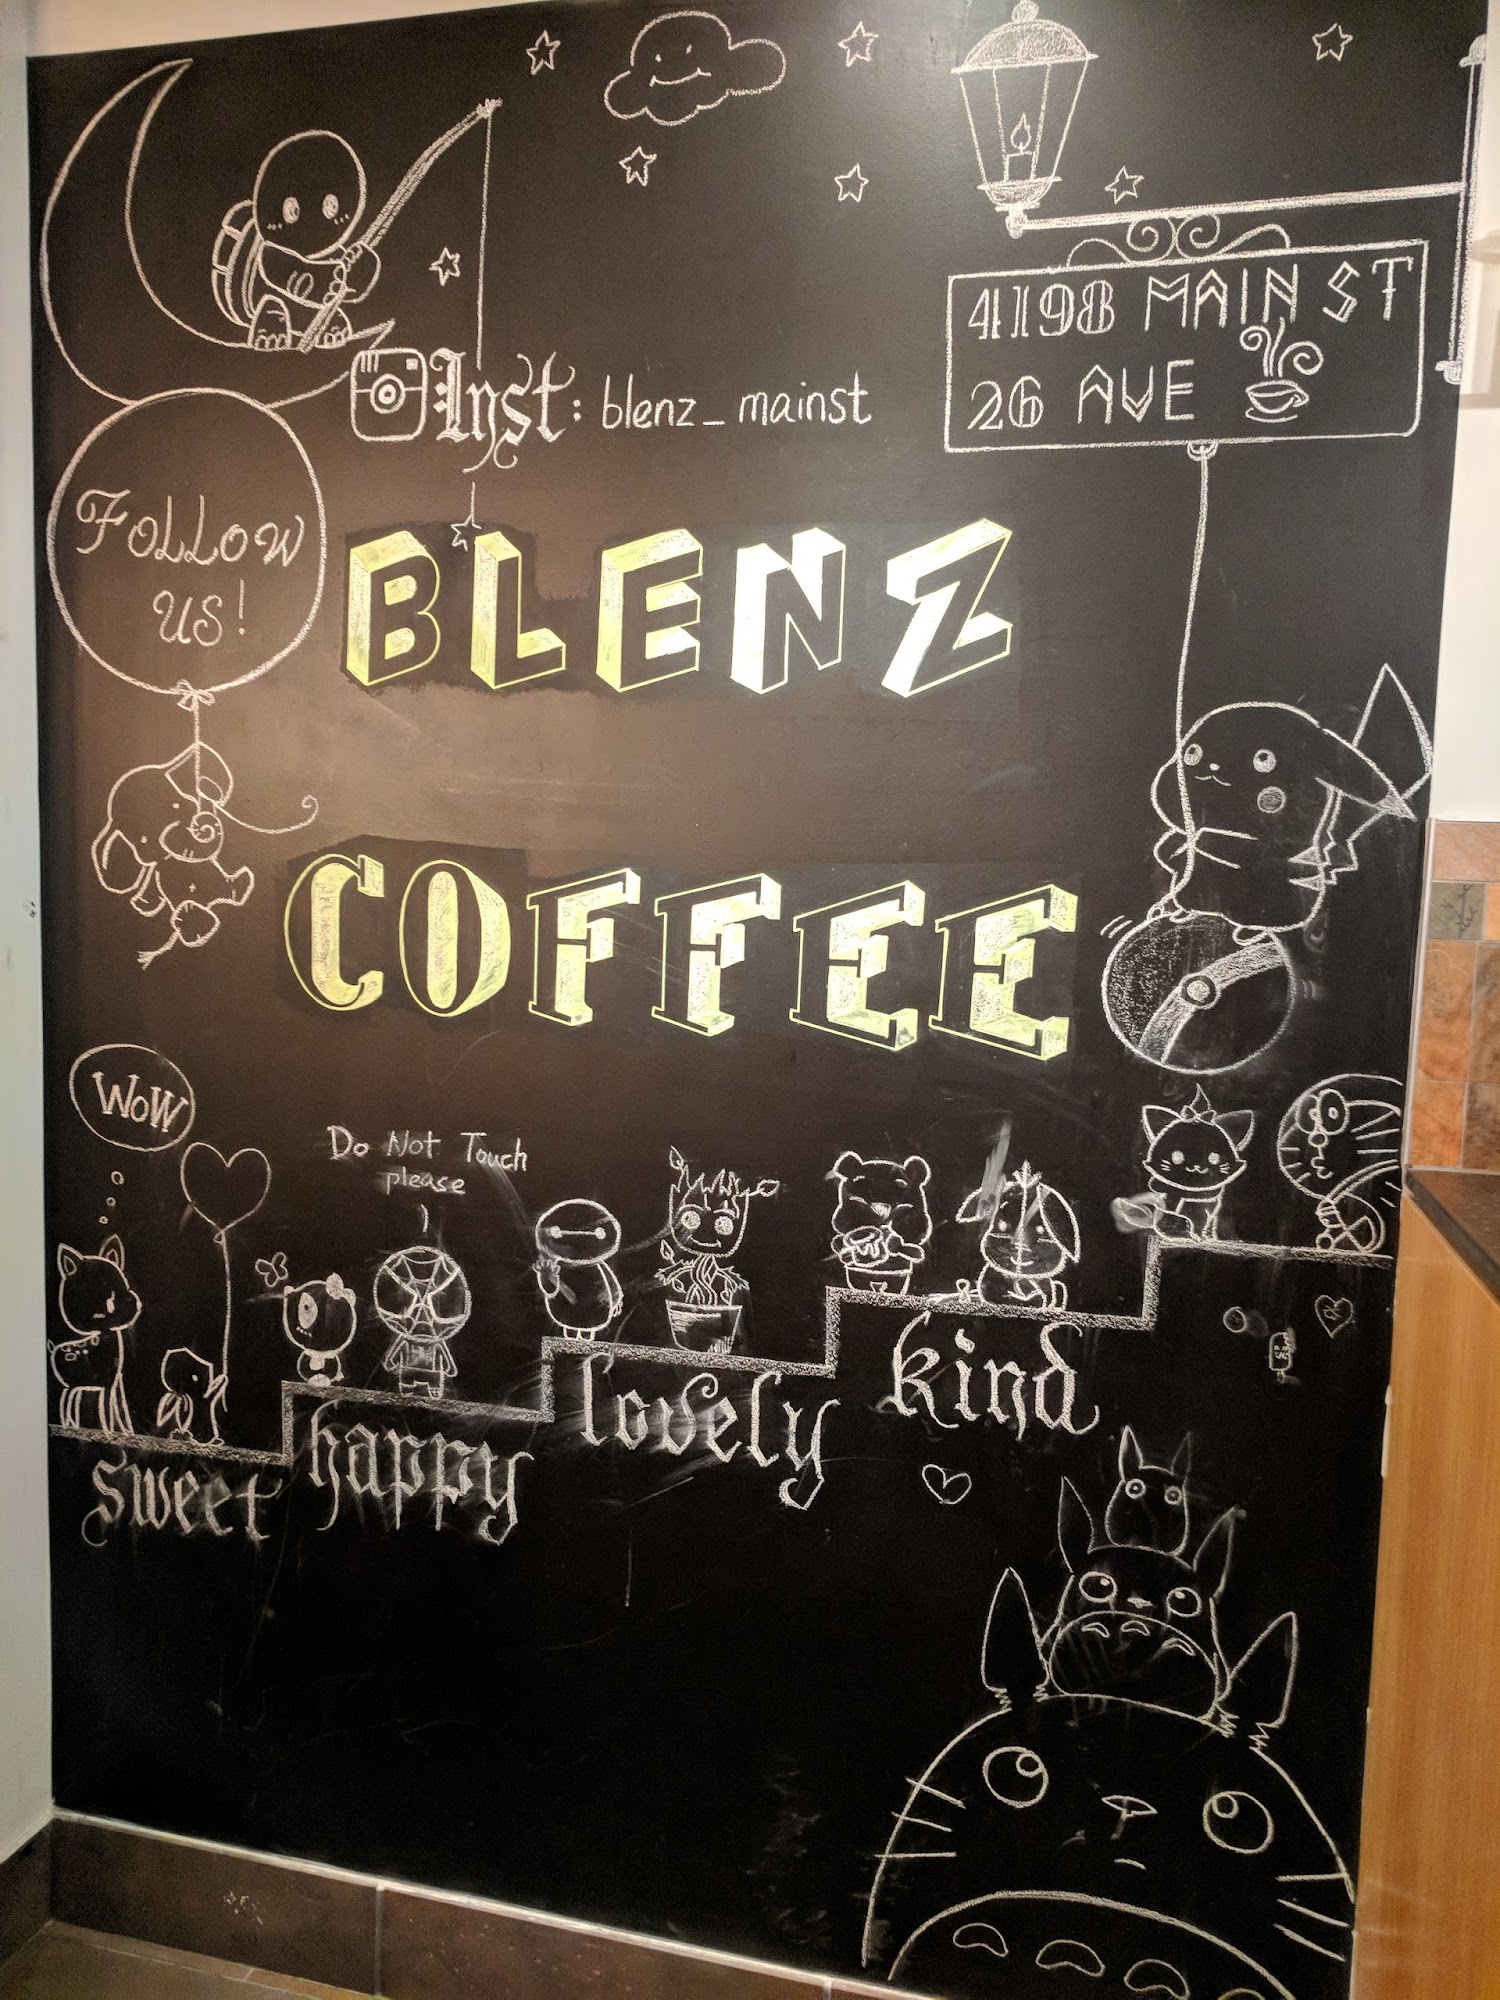 4198 MAIN ST
26 AVE
Inst: blenz_mainst
FOLLOW
US!
BLENZ
COFFEE
WOW
Do Not Touch
please
sweet
happy
lovely
kind